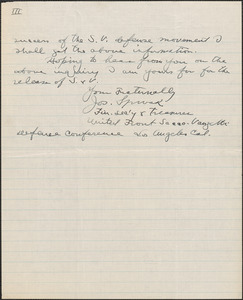 III
success of the S.V. defense movement I
shall get the above information.
Hoping to hear from you on the
above inquiry I am yours for for the
release of S & V
Yours Fraternally
Jos.
Fin. Sec'y & Treasurer
United Front Sacco-Vanzetti
defense conference Los Angeles Cal.